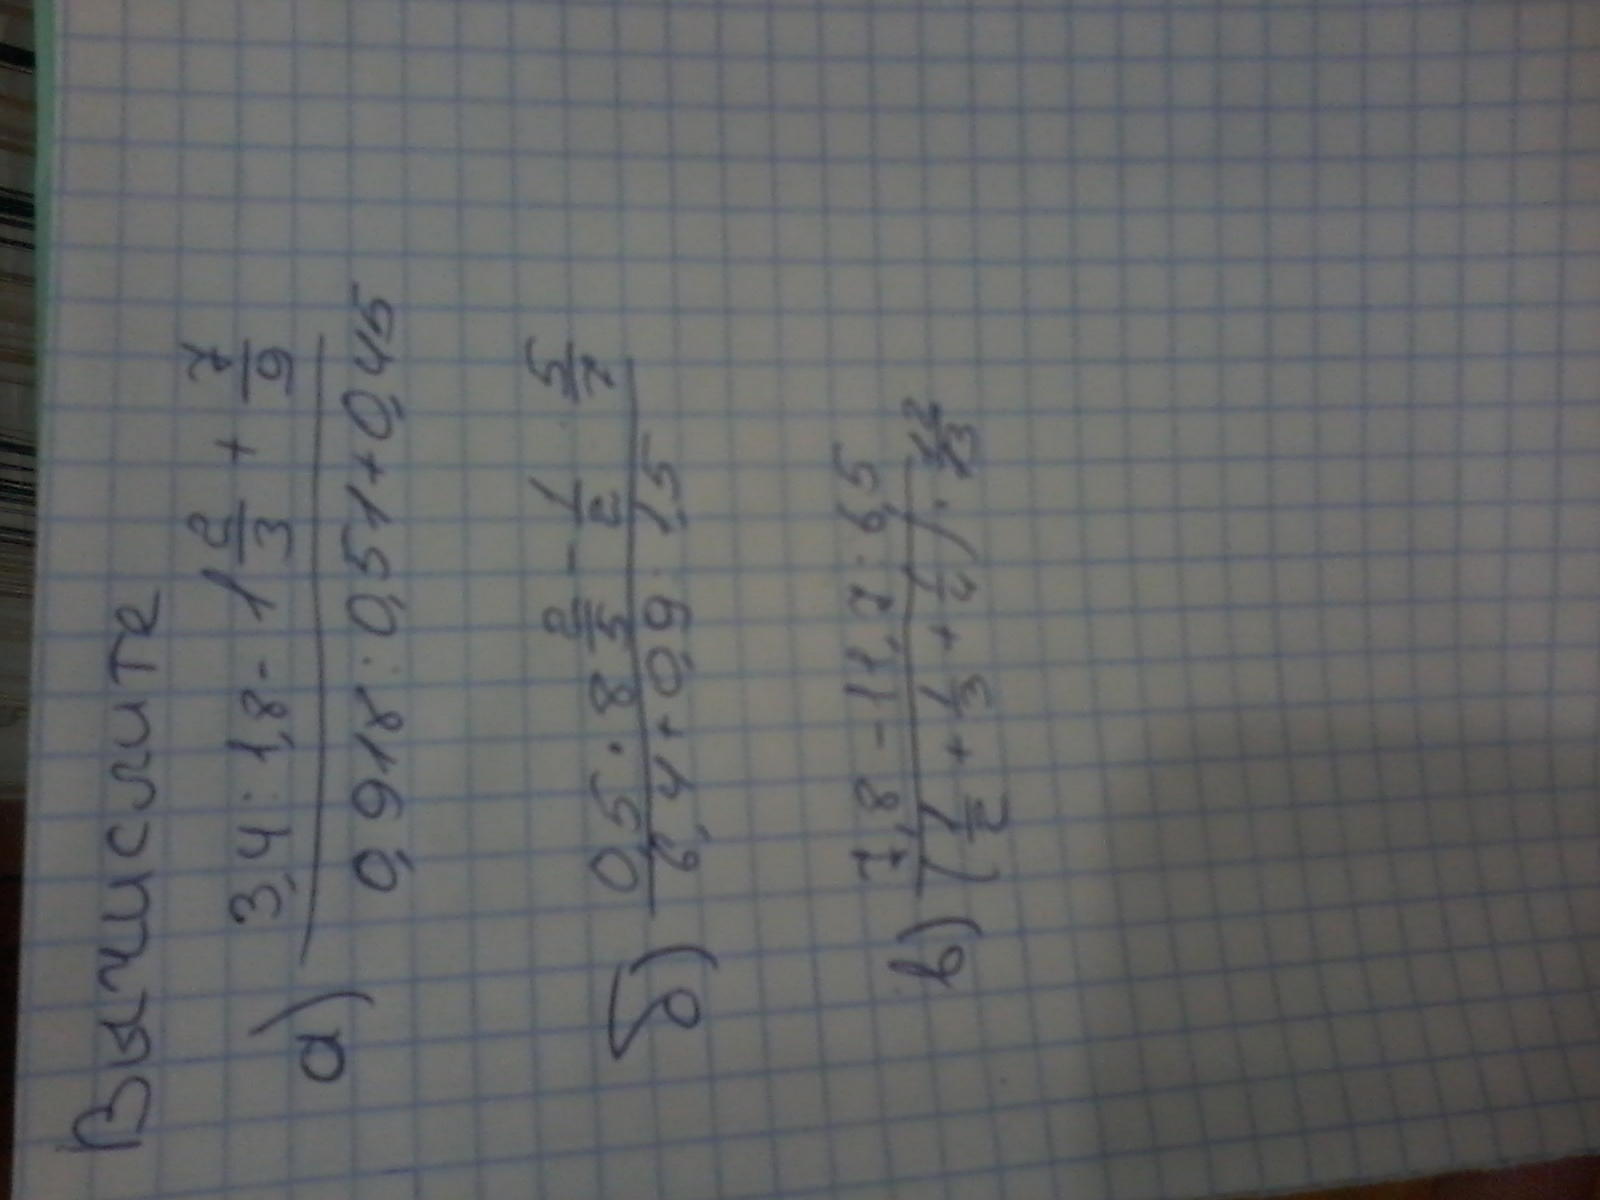 Вычислите
а) 3,4 : 1,8 - 1 2/3 + 7/9
0,918 : 0,51 + 0,45
б) 0,5 · 8 2/5 - 1/2 · 5/7
6,4 + 0,9 · 1,5
в) 7,8 - 11,7 : 6,5
(1/2 + 1/3 + 1/4) ·